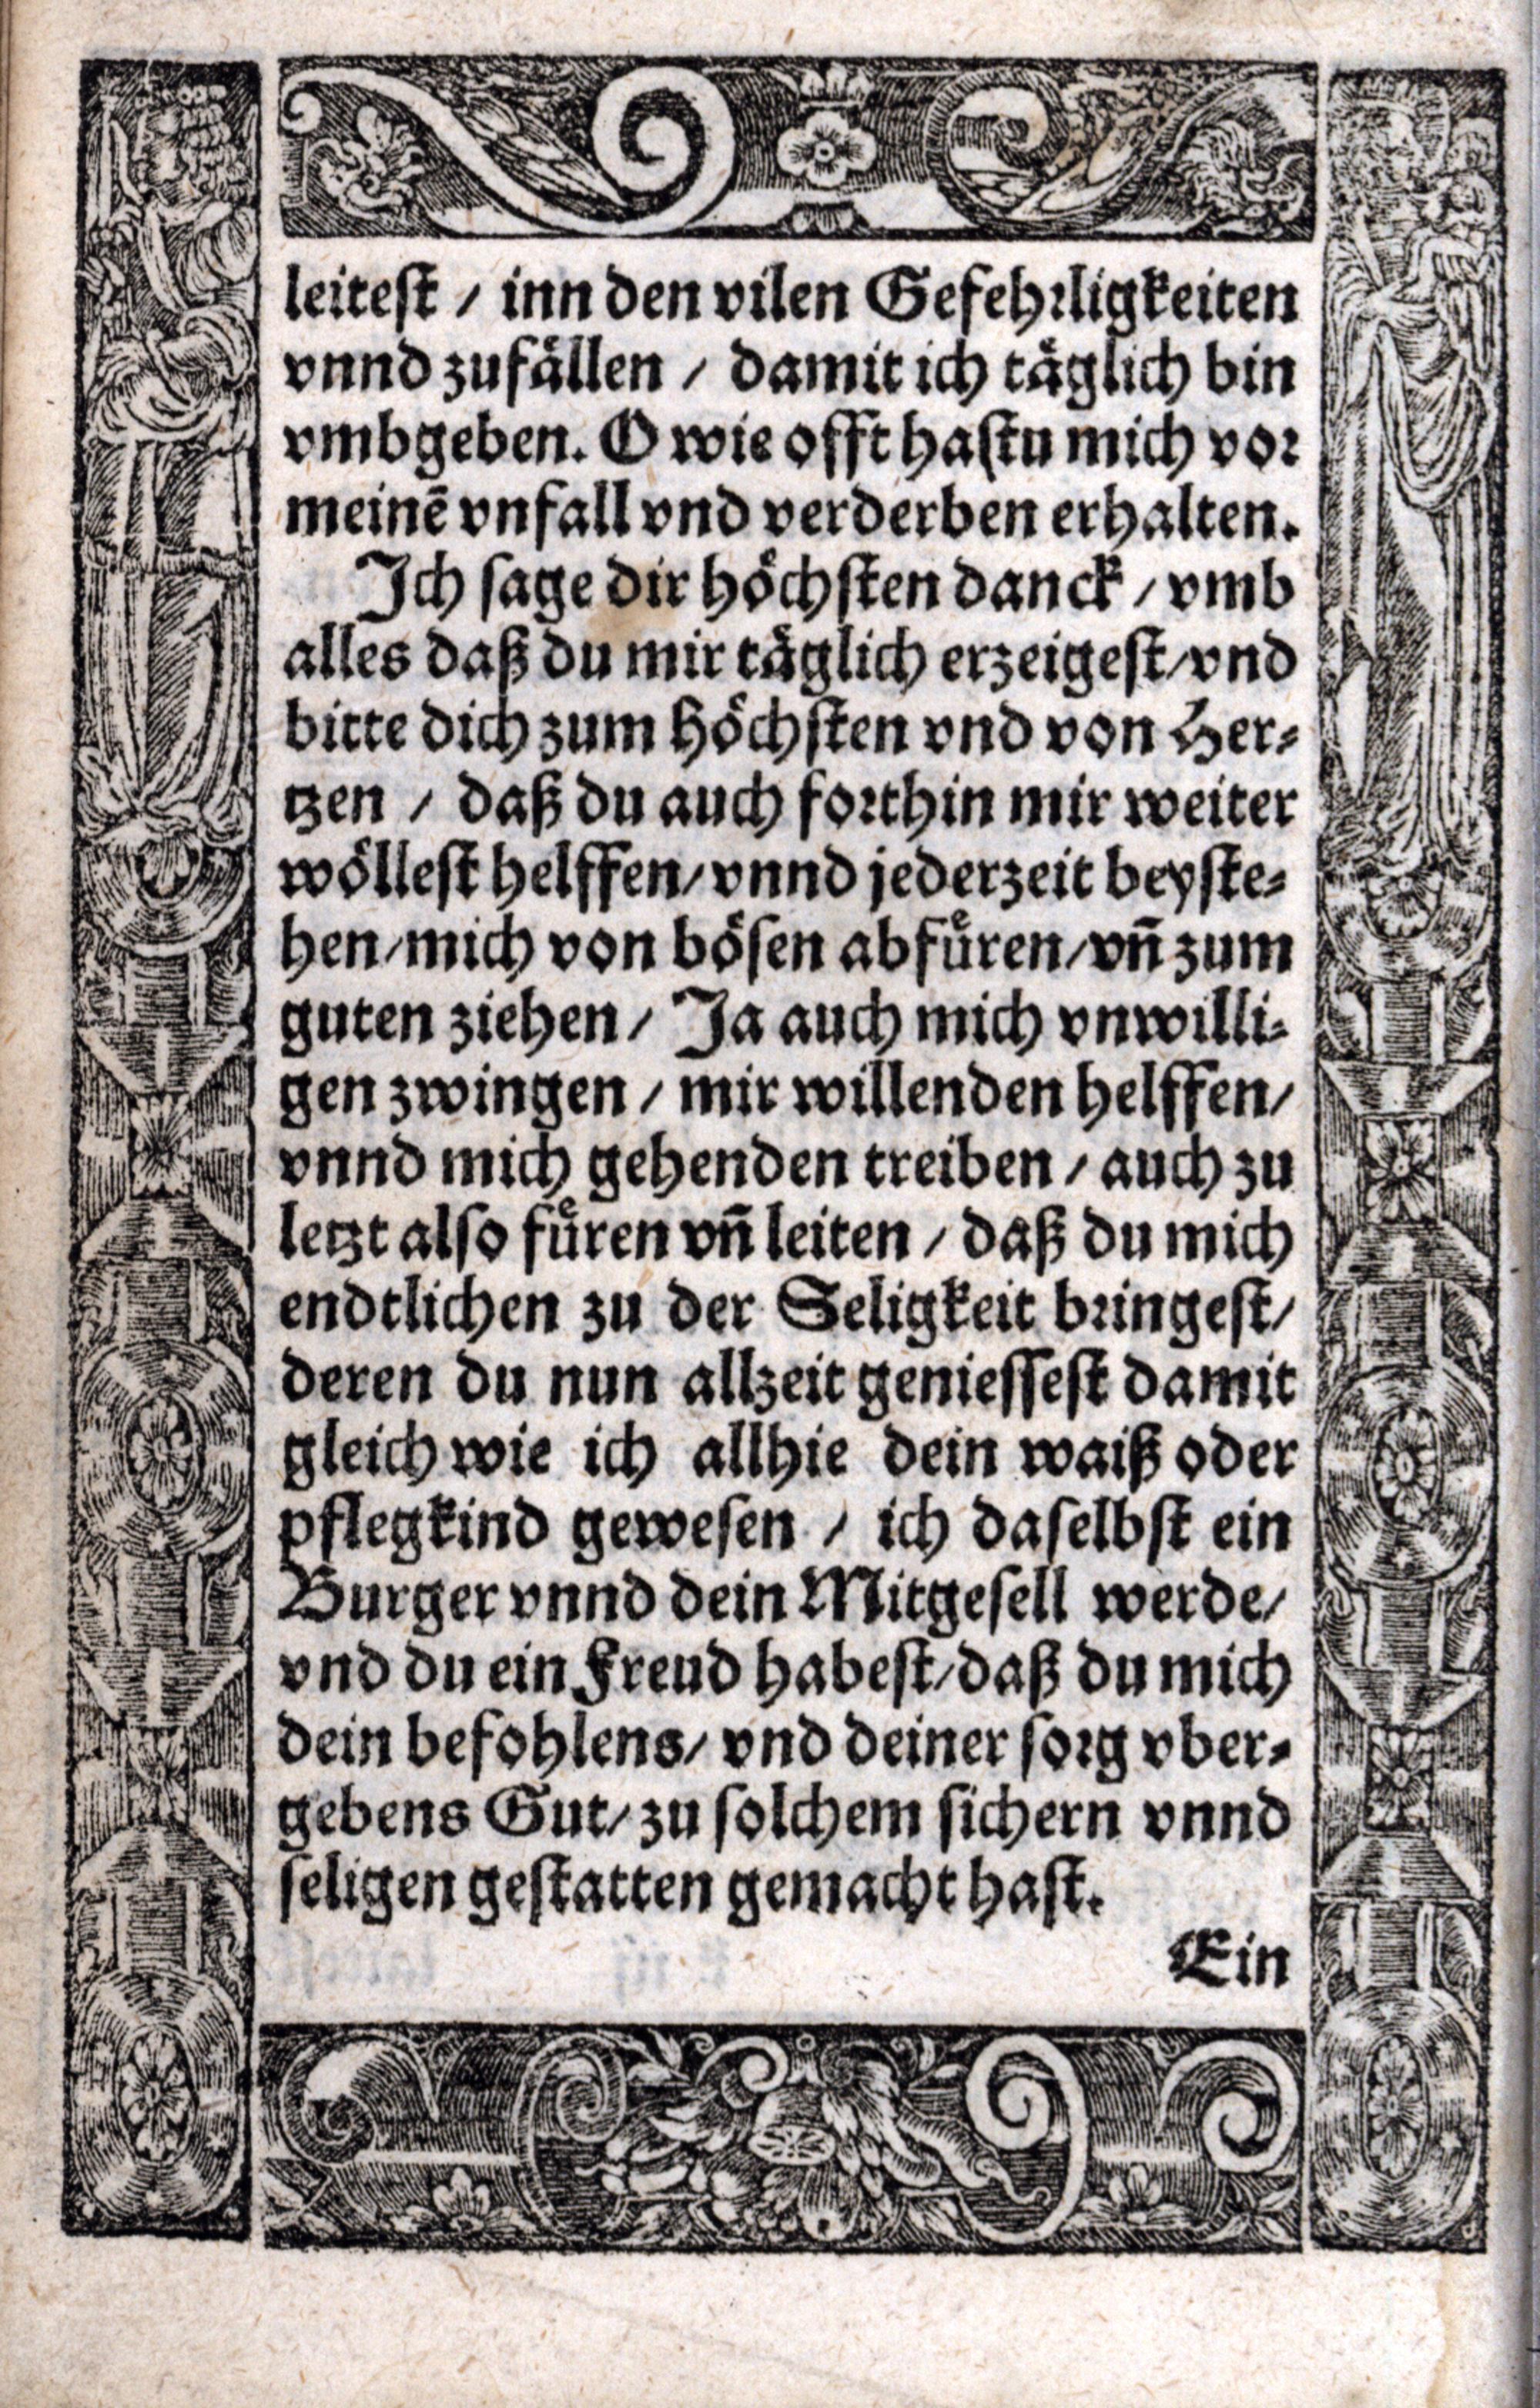 leitest / inn den vilen Gefehrligkeiten
vnnd zufällen / damit ich täglich bin
vmbgeben. O wie offt hastu mich vor
meinē vnfall vnd verderben erhalten.
Ich sage dir höchsten danck / vmb
alles daß du mir täglich erzeigest / vnd
bitte dich zum höchsten vnd von Her⸗
tzen / daß du auch forthin mir weiter
wöllest helffen / vnnd jederzeit beyste⸗
hen / mich von bösen abfüren / vn̄ zum
guten ziehen / Ja auch mich vnwilli⸗
gen zwingen / mir willenden helffen /
vnnd mich gehenden treiben / auch zu
letzt also füren vn̄ leiten / daß du mich
endtlichen zu der Seligkeit bringest /
deren du nun allzeit geniessest damit
gleich wie ich allhie dein waiß oder
pflegkind gewesen / ich daselbst ein
Burger vnnd dein Mitgesell werde /
vnd du ein Freud habest / daß du mich
dein befohlens / vnd deiner sorg vber⸗
gebens Gut / zu solchem sichern vnnd
seligen gestatten gemacht hast.
Ein